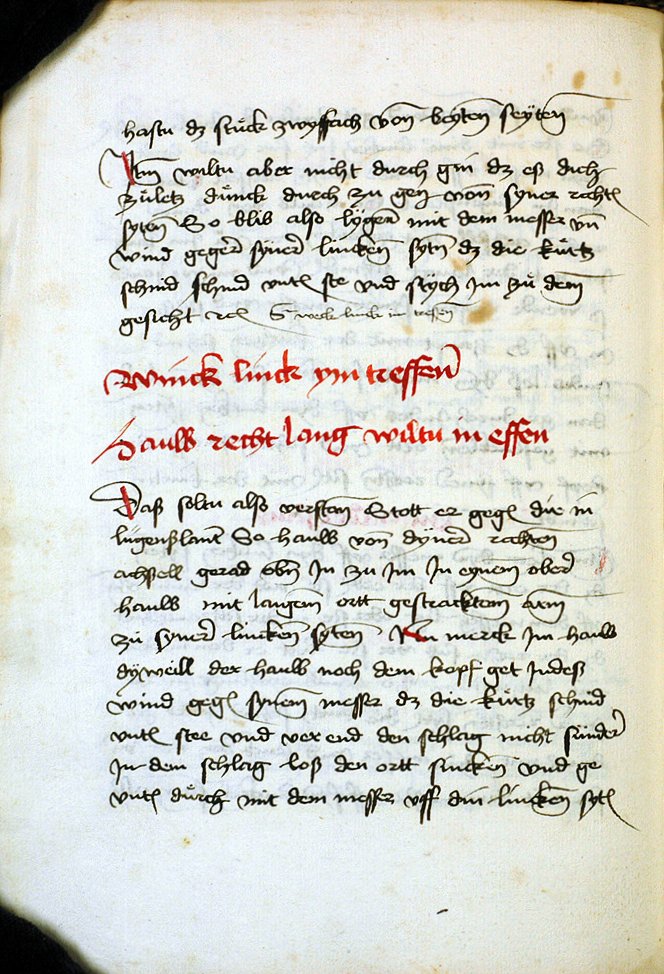 hastu dz stuck zwyffach von beÿten seÿten
Item wiltu aber nicht durch gin dz eß dich
zůletz dunck durch zu gen von syner recht
syten So blib also lygen mit dem messer vn
wind gegen syner lincken sytn dz die kurtz
schnid schnid vnten ste vnd stych Im zů dem
gesicht
Winck linck ym treffen
Hauw recht lang wiltu in effen
Daß soltu also versten Stott er gegen dir in
lugenßlant So hauw von dyner rechten
achssell gerad ebn In zu im In eynem ober
hauw mit langem ortt gestracktem arm
zu syner lincken syten Nu merck Im hauw
dyweill der hauw noch dem kopf get Indeß
wind gegen synem messer dz die kurtz schnid
vnten stee vnd verend den schlag nicht sunder
In dem schlag loß den ortt sincken vnd ge
vnten durch mit dem messer vff din lincken syten